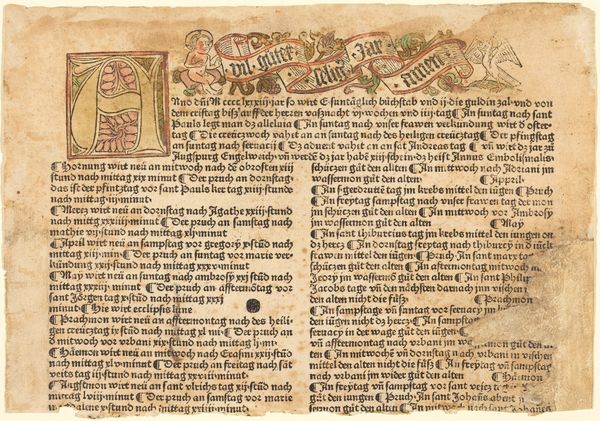 vil guter
selig Jar
amen
ANno dñi M cccc lxxiij · jar so wirt C suntäglich bůchstab vnd ij · die guldin zal · vnd von
dem cristag biss auff der herren vassnacht vij wochen vnd iij · tag ¶ In suntag nach sant
Pauls legt man dz alleluia ¶ In suntag nach vnser frawen verkündung wirt d oster-
tag ¶ Die creüczwoch vahet an an suntag nach des heiligen creücztag ¶ Der pfingstag
an suntag nach seruacij ¶ Dz aduent vahet an an sat Andreas tag ¶ vñ wirt dz jar zu
Augspurg Engelweich vñ werdē dz jar habē xiij · sch in · dz heist Annus Embolismalis ·
¶ Hornung wirt neü an mitwoch nach dē obrosten xiij
stund nach mittag xix minut · ¶ Der pruch an dornstag ·
das ist der pfincztag vor sant Pauls ker tag xiiij · stunde
nach mittag · iij · minut ·
¶ Mercz wirt neü an dornstag nach Agathe xxiij · stund
nach mittag xxxiiij · minut ¶ Der pruch an samstag nach
mathie vij · stund nach mittag xlj · minut
¶ April wirt neü an sampstag vor gregorÿ x · stūd nach
mittag xiij · min · ¶ Der pruch an suntag vor marie ver-
kündung xxij · stund nach mittag xxx · minut
¶ May wirt neü an suntag nach ambrosÿ xxj stund nach
mittag xxxiij · minut ¶ Der pruch an afftermōtag vor
sant Jörgen tag x · stund nach mittag xxxj
minut · ¶ Hie wirt ecclipsis lune
¶ Prachmon wirt neü an afftermontag nach des heili-
gen creücztag ix stund nach mittag xl mi · ¶ Der pruch an
d mitwoch vor vrbani xix · stund nach mittag lj · mi ·
¶ Häemon wirt neü an mitwoch nach Erasmi xxij · stūd
nach mittag xl · minut · ¶ Der pruch an freitag nach sāt
veits tag iij · stund nach mittag xxiiij · minut ·
¶ Augstmon wirt neü an sant vlrichs tag xij · stūd nach
mittag lviij · minut ¶ Der pruch an samstag vor marie
magdalene x · stund nach mittag xviij · minut
schüczen gůt den alten ¶ In mitwoch nach Adriani jm
wassermon gůt den alten ¶ April
¶ In Sgerdrutē tag jm krebs mittel den iügen ¶ Pruch
¶ In freytag sampstag nach vnser frawen tag der mon
jm schüczen gůt den alten ¶ In mitwoch vor Ambrosÿ
jm wassermon gůt den alten ¶ May
¶ In sāt thiburcius tag jm krebs mittel den iungen on
dz hercz ¶ In dornstag freytag nach thiburcÿ in d iückfrawen
mittel den iungen ¶ Pruch In sant marx tag
schüczen gůt den alten ¶ In afftermontag mitwoch
Jeorÿ jm wassermō gůt den alten ¶ In sant Philip
Jacobs tage vñ den nächsten darnach jm vischen
den alten nicht die füss · ¶ Prachmon
¶ In sampstage vñ suntag vor seruacy jm
den iügen nicht dz hercz · ¶ In sampstag
seruacy in der wage gůt den iügen ·
vñ afftermontag nach vrbani jm wassermon gůt den
¶ In mitwochē vñ dornstag nach vrbani in vischen
mittel den alten nicht die füss · ¶ In freytag vñ sampstag
nach vrbani jm wider gůt den alten ¶ Häimon
¶ In freytag vñ sampstag vor veicz
den iungen ¶ Pruch In sant Johans abent
schüczen gůt den alten ¶ In mitwoch nach